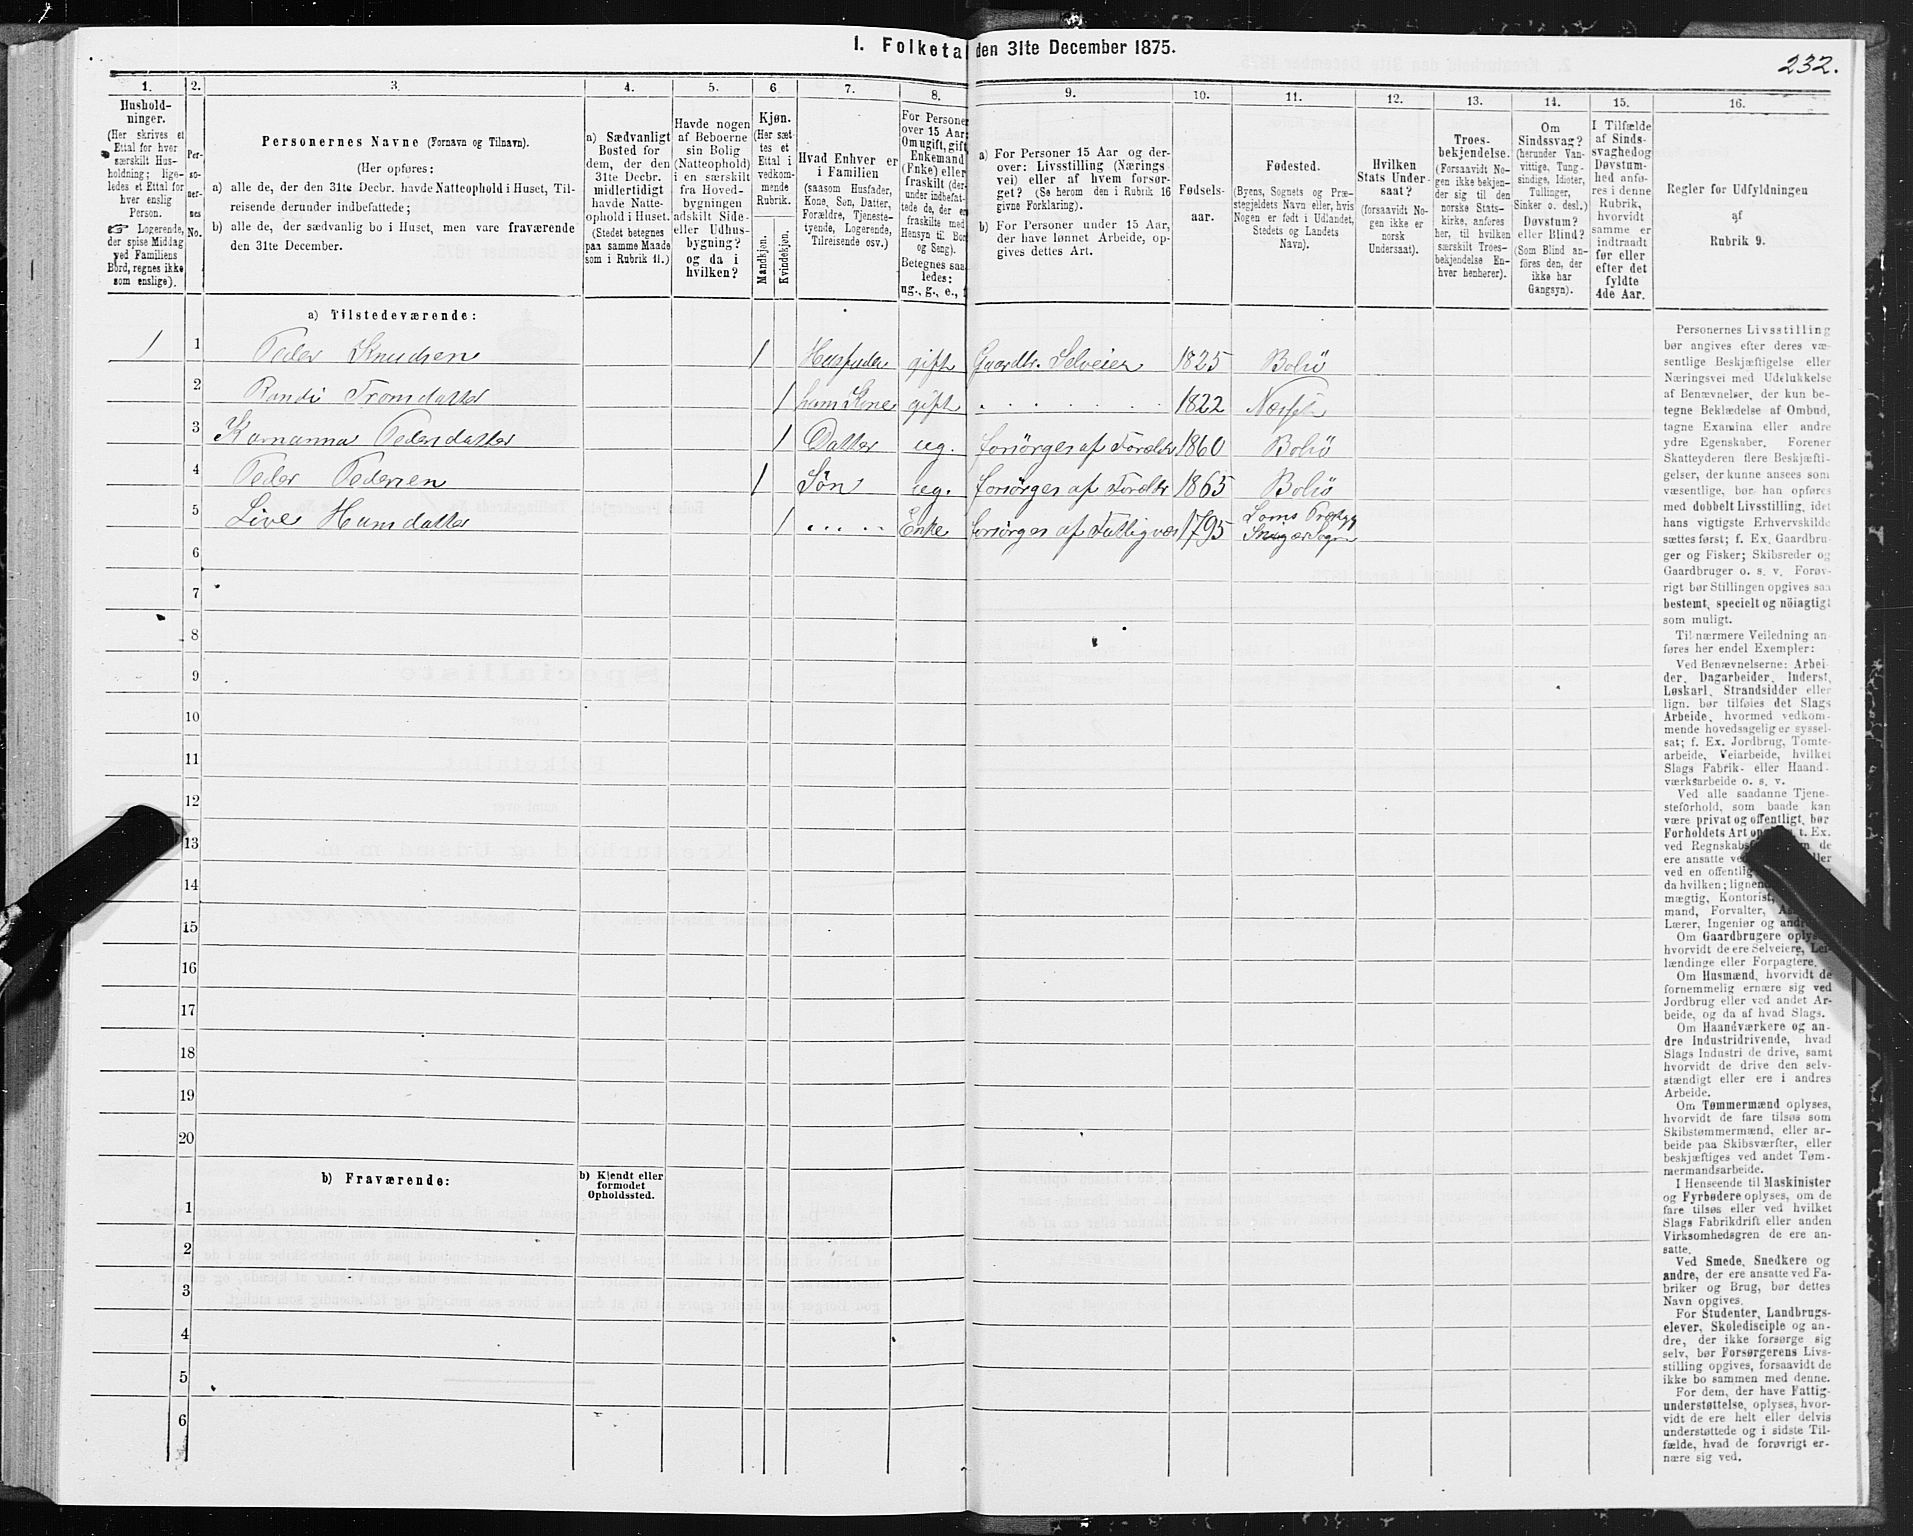 1. Folketal den 31te December 1875.
232.
1.
2.
3.
4.
5.
6
7.
8.
9.
10.
11.
12.
13.
14.
15.
16.
Hushold-
ninger.
(Her skrives et
Ettal for hver
særskilt Hus-
holdning; lige-
ledes et Ettal for
hver enslig
Person.
☞ Logerende,
der spise Middag
ved Familiens
Bord, regnes ikke
som enslige).
Per-
so-
ner-
nes
No.
Personernes Navne (Fornavn og Tilnavn).
(Her opføres:
a) alle de, der den 31te Decbr. havde Natteophold i Huset, Til-
reisende derunder indbefattede;
b) alle de, der sædvanlig bo i Huset, men vare fraværende
den 31te December.
a) Sædvanligt
Bosted for
dem, der den
31te Decbr.
midlertidigt
havde Natte-
ophold i Huset.
(Stedet betegnes
paa samme Maade
som i Rubrik 11.)
Havde nogen
af Beboerne
sin Bolig
(Natteophold)
i en særskilt
fra Hoved-
bygningen
adskilt Side-
eller Udhus-
bygning?
og da i
hvilken?
Kjøn.
(Her sæt-
tes et
Ettal i
vedkom-
mende
Rubrik.
Mandkjøn.
Kvindekjøn.
Hvad Enhver er
i Familien
(saasom Husfader,
Kone, Søn, Datter,
Forældre, Tjeneste-
tyende, Logerende,
Tilreisende osv.)
For Personer
over 15 Aar:
Om ugift, gift,
Enkemand
(Enke) eller
fraskilt (der-
under indbefat-
tede de, der er
fraskilte med
Hensyn til Bord
og Seng).
Betegnes saa-
ledes:
ug., g., e., f
a) For Personer 15 Aar og der-
over: Livsstilling (Nærings-
vei) eller af hvem forsør-
get? (Se herom den i Rubrik 16
givne Forklaring).
b) For Personer under 15 Aar,
der have lønnet Arbeide, op-
gives dettes Art.
Fødsels-
aar.
Fødested.
(Byens, Sognets og Præ-
stegjeldets Navn eller, hvis
Nogen er født i Udlandet,
Stedets og Landets
Navn).
Hvilken
Stats Under-
saat?
(forsaavidt No-
gen ikke er
norsk
Undersaat).
Troes-
bekjendelse.
(Forsaavidt No-
gen ikke bekjen-
der sig til den
norske Stats-
kirke, anføres
her, til hvilken
særskilt Troes-
bekjendelse En-
hver henhører).
Om
Sindssvag?
(herunder Van-
vittige, Tung-
sindige, Idioter,
Tullinger,
Sinker o. desl.)
Døvstum?
eller Blind?
(Som Blind an-
føres den, der
ikke har
Gangsyn).
I Tilfælde
af Sinds-
svaghed og
Døvstum-
hed anfø-
res i denne
Rubrik,
hvorvidt
samme er
indtraadt
før eller
efter det
fyldte
4de Aar.
Regler for Udfyldningen
af
Rubrik 9.
a) Tilstedeværende:
1 1 Peder Knudsen 1 Husfader gift Gaardbr. Selveier 1825 Bolsö
2 Randi Tromsdatter 1 hans Kone gift . . . . . . . 1822 Næsset
3 Karnanna Pedersdatter 1 Datter ug. forsörges af Foreldr 1860 Bolsö
4 Peder Pedersen 1 Sön ug. forsörges af Foreldr 1865 Bolsö
5 Live Hansdatter 1 . . . . . Enke forsörges af Fattigvæs 1795 Loms Præstgj
Sogn
6
7
8
9
10
11
12
13
14
15
16
17
18
19
20
b) Fraværende:
b) Kjendt eller
formodet
Opholdssted.
1
2
3
4
5
6
Personernes Livsstilling
bør angives efter deres væ-
sentlige Beskjæftigelse eller
Næringsvei med Udelukkelse
af Benævnelser, der kun be-
tegne Beklædelse af Ombud,
tagne Examina eller andre
ydre Egenskaber. Forener
Skatteyderen flere Beskjæfti-
gelser, der kunne ansees som
væsentlige, bør han opføres
med dobbelt Livsstilling, idet
hans vigtigste Erhvervskilde
sættes først; f. Ex. Gaardbru-
ger og Fisker; Skibsreder og
Gaardbruger o. s. v. Forøv-
rigt bør Stillingen opgives saa
bestemt, specielt og nöiagtigt
som muligt.
Til nærmere Veiledning an-
føres her endel Exempler:
Ved Benævnelserne: Arbei-
der, Dagarbeider, Inderst,
Løskarl, Strandsidder eller
lign. bør tilføies det Slags
Arbeide, hvormed vedkom-
mende hovedsagelig er syssel-
sat; f. Ex. Jordbrug, Tomte-
arbeide, Veiarbeide, hvilket
Slags Fabrik- eller Haand-
værksarbeide o. s. v.
Ved alle saadanne Tjene-
steforhold, som baade kan
være privat og offentligt, bør
Forholdets Art t. Ex.
ved de
ere ansatte eller
ved en offentlig
da hvilken;
mægtig, Kontorist,
mand, Forvalter,
Lærer, Ingeniør og
Om Gaardbrugere oplyses,
hvorvidt de ere Selveiere, Lei-
lændinge eller Forpagtere.
Om Husmænd, hvorvidt de
fornemmelig ernære sig ved
Jordbrug eller ved andet Ar-
beide, og da af hvad Slags.
Om Haandværkere og an-
dre Industridrivende, hvad
Slags Industri de drive, samt
hvorvidt de drive den selv-
stændigt eller ere i andres
Arbeide.
Om Tømmermænd oplyses,
hvorvidt de fare tilsøs som
Skibstømmermænd, eller ar-
beide paa Skibsværfter, eller
beskjæftiges ved andet Tøm-
mermandsarbeide.
I Henseende til Maskinister
og Fyrbødere oplyses, om de
fare tilsøs eller ved hvilket
Slags Fabrikdrift eller anden
Virksomhedsgren de ere an-
satte.
Ved Smede, Snedkere og
andre, der ere ansatte ved Fa-
briker og Brug, bør dettes
Navn opgives.
For Studenter, Landbrugs-
elever, Skoledisciple og an-
dre, der ikke forsørge sig
selv, bør Forsørgerens Livs-
stilling opgives, forsaavidt de
ikke bo sammen med denne.
For dem, der have Fattig-
understøttelse, oplyses, hvor-
vidt de ere helt eller delvis
understøttede og i sidste Til-
fælde, hvad de forøvrigt er-
nære sig ved.